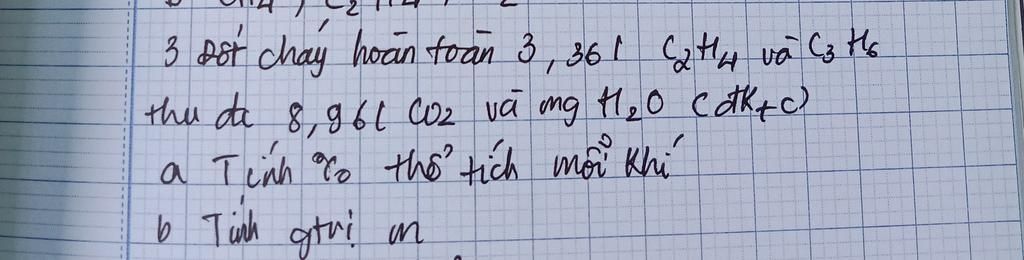 3 Đốt cháy hoàn toàn 3,36l C2H4 và C3H6
thu đc 8,96l CO2 và mg H2O (đk+c)
a Tính % thể tích mỗi khí
b Tính gtrị m